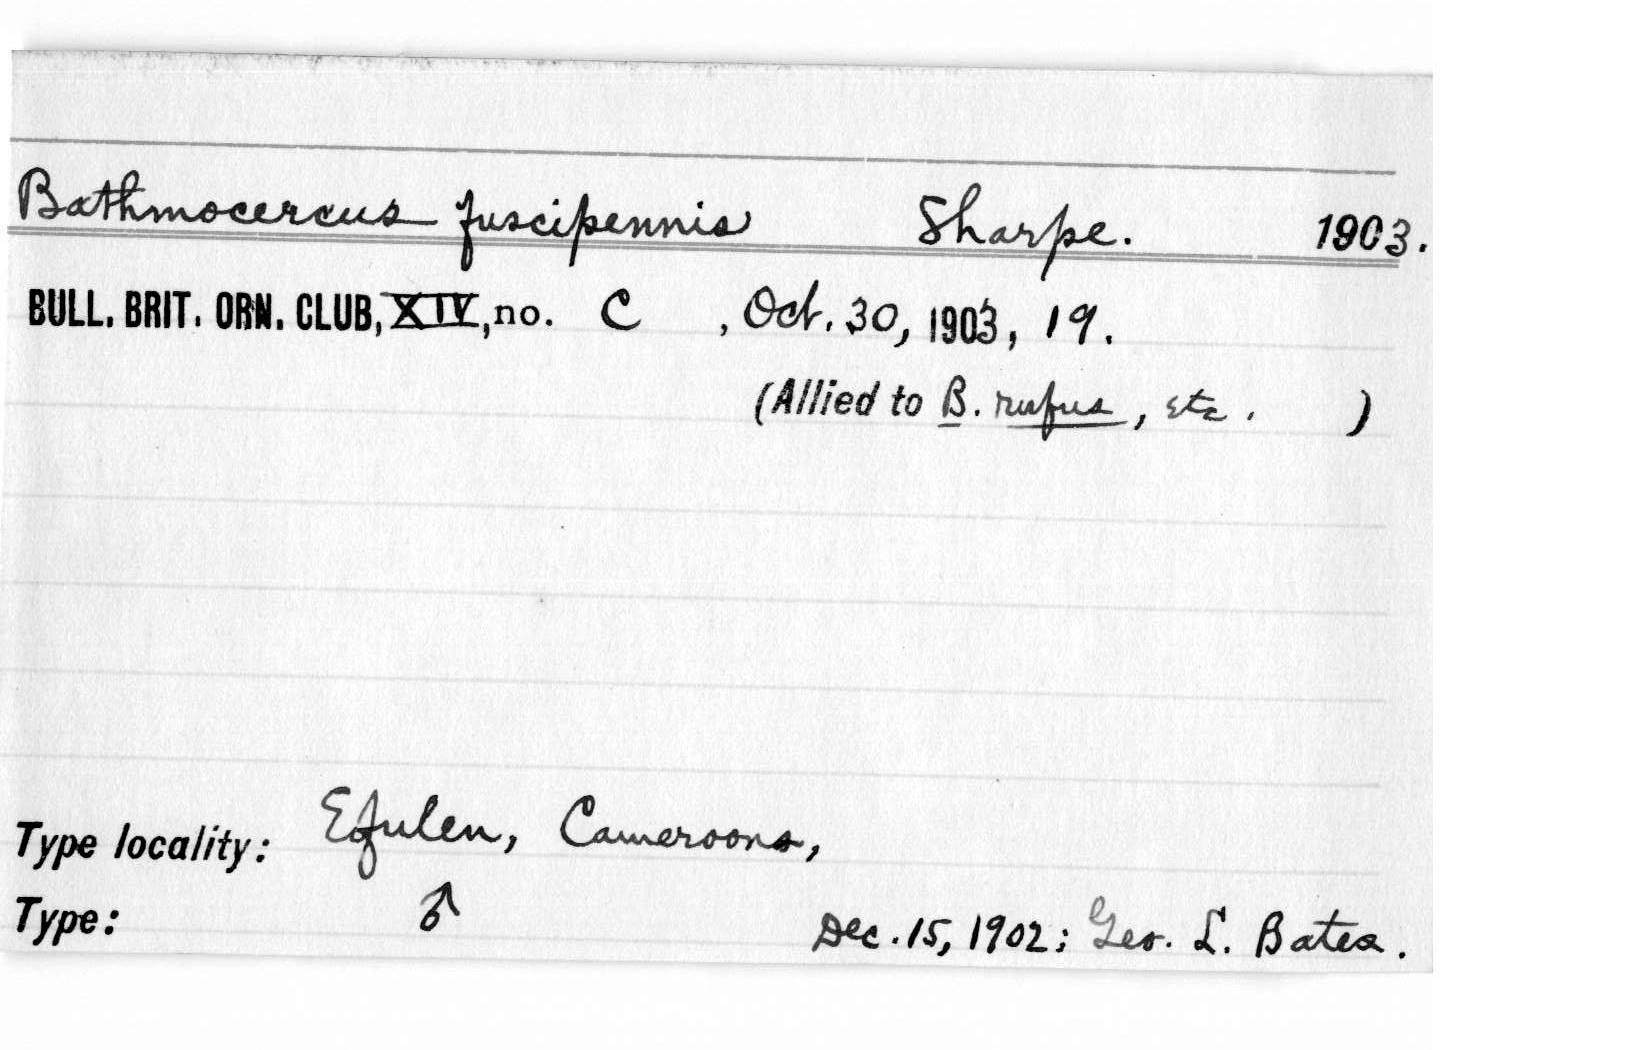 Bathmocercus fuscipennis Sharpe. 1903.
BULL. BRIT. ORN. CLUB, XIV, no. C , Oct. 30, 1903, 19.
(Allied to B. rufus, etc. )
Type locality: Efulen, Cameroons,
Type: ♂ Dec. 15, 1902; Geo. L. Bates.